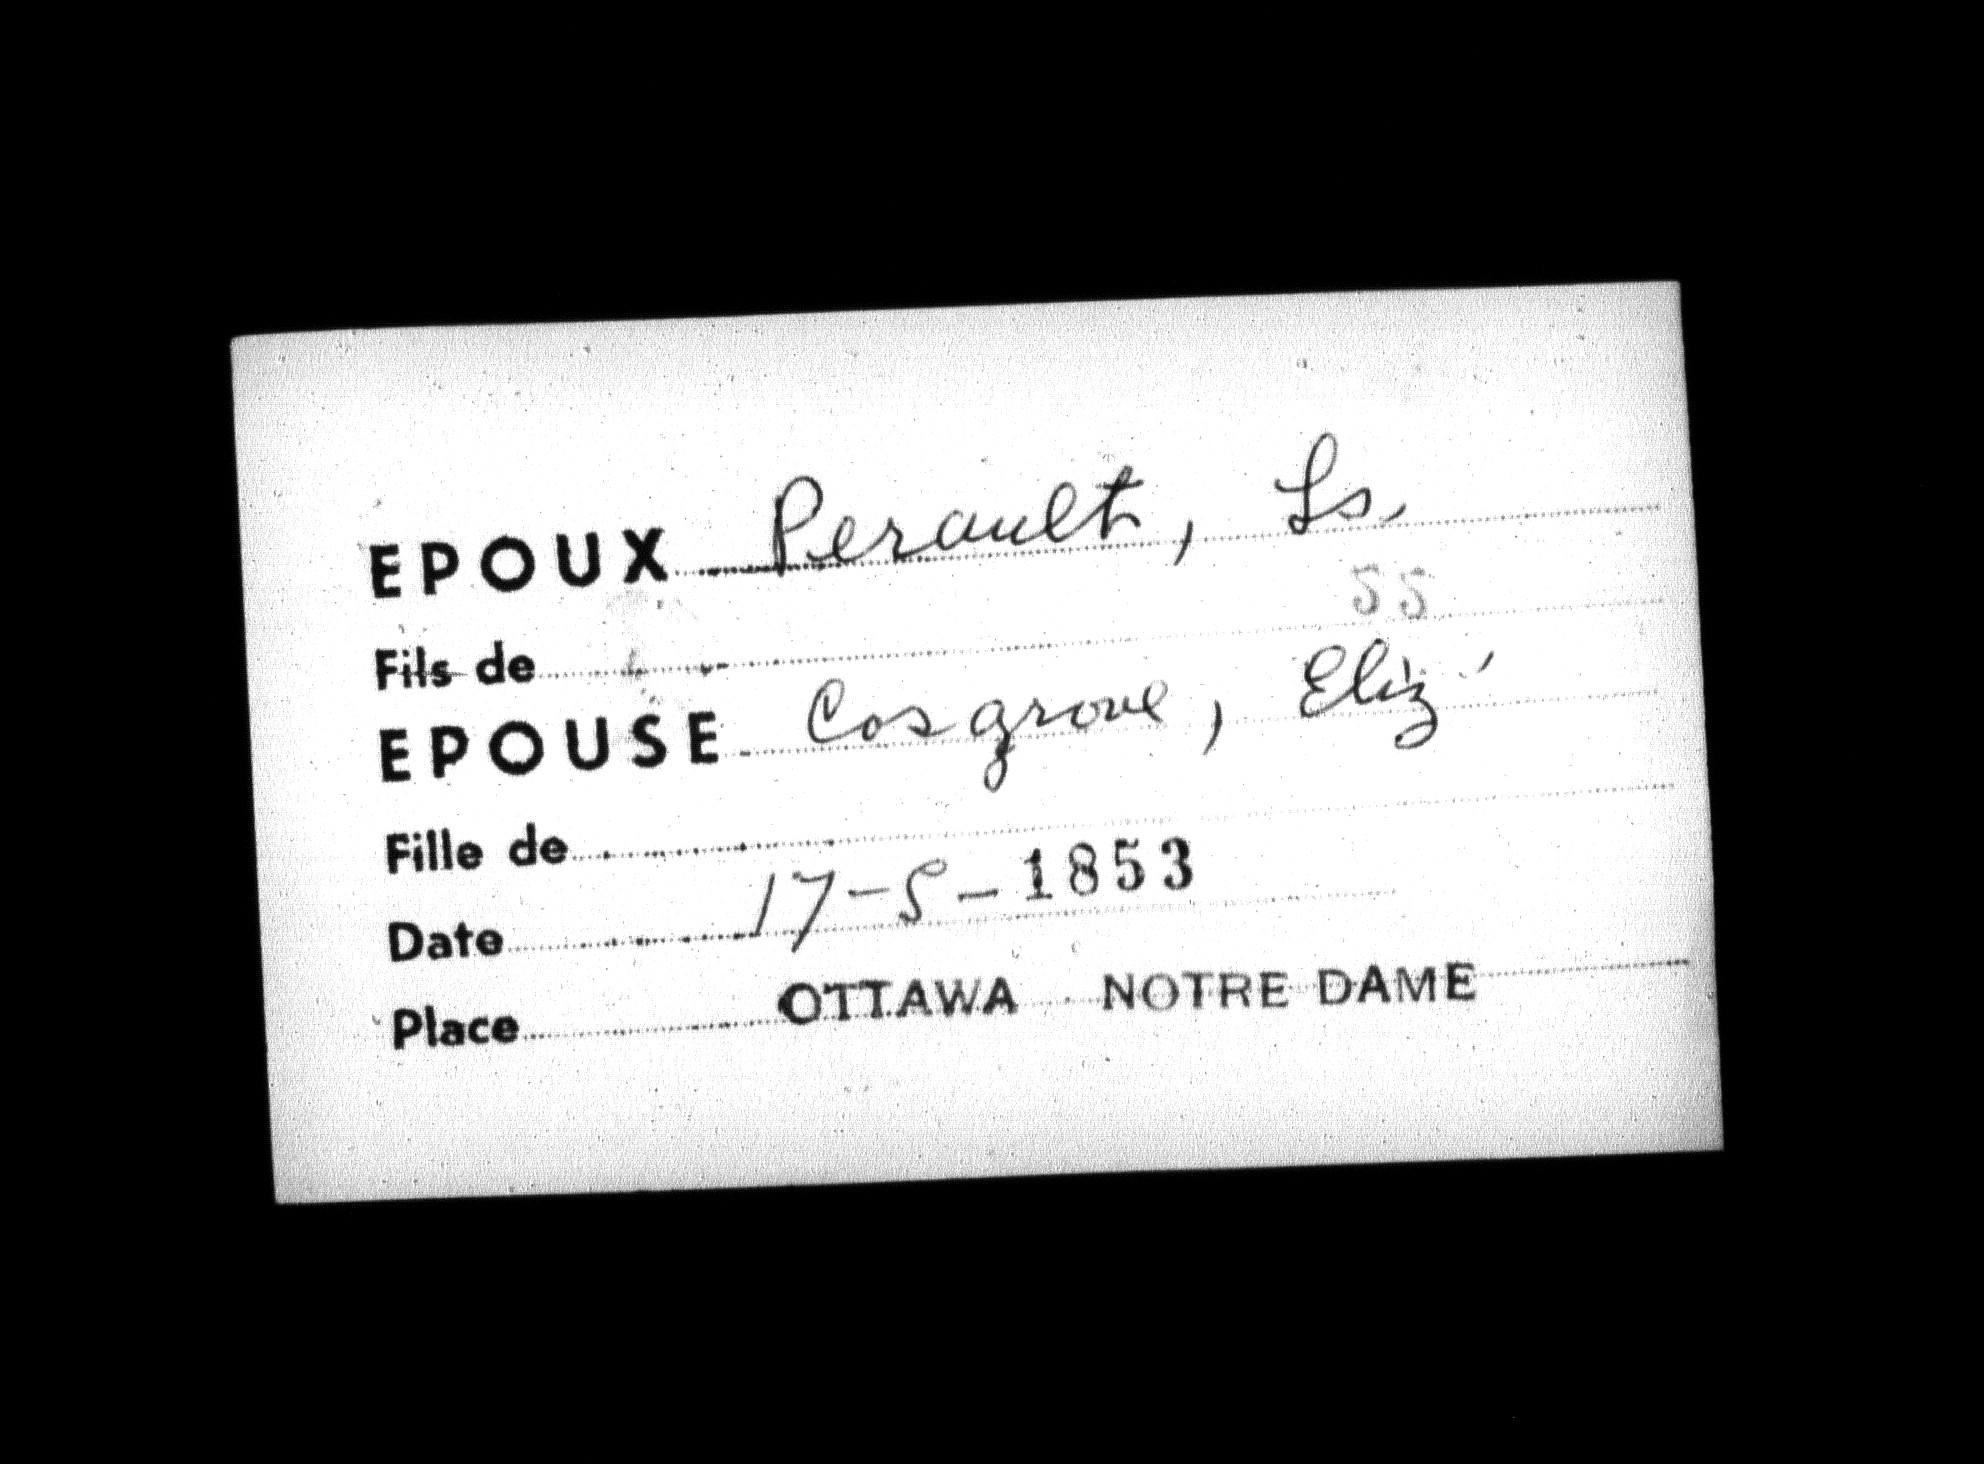 EPOUX Perault, Ls.
55
Fils de
EPOUSE Cosgrove, Eliz
Fille de
Date 17-5-1853
Place OTTAWA NOTRE DAME